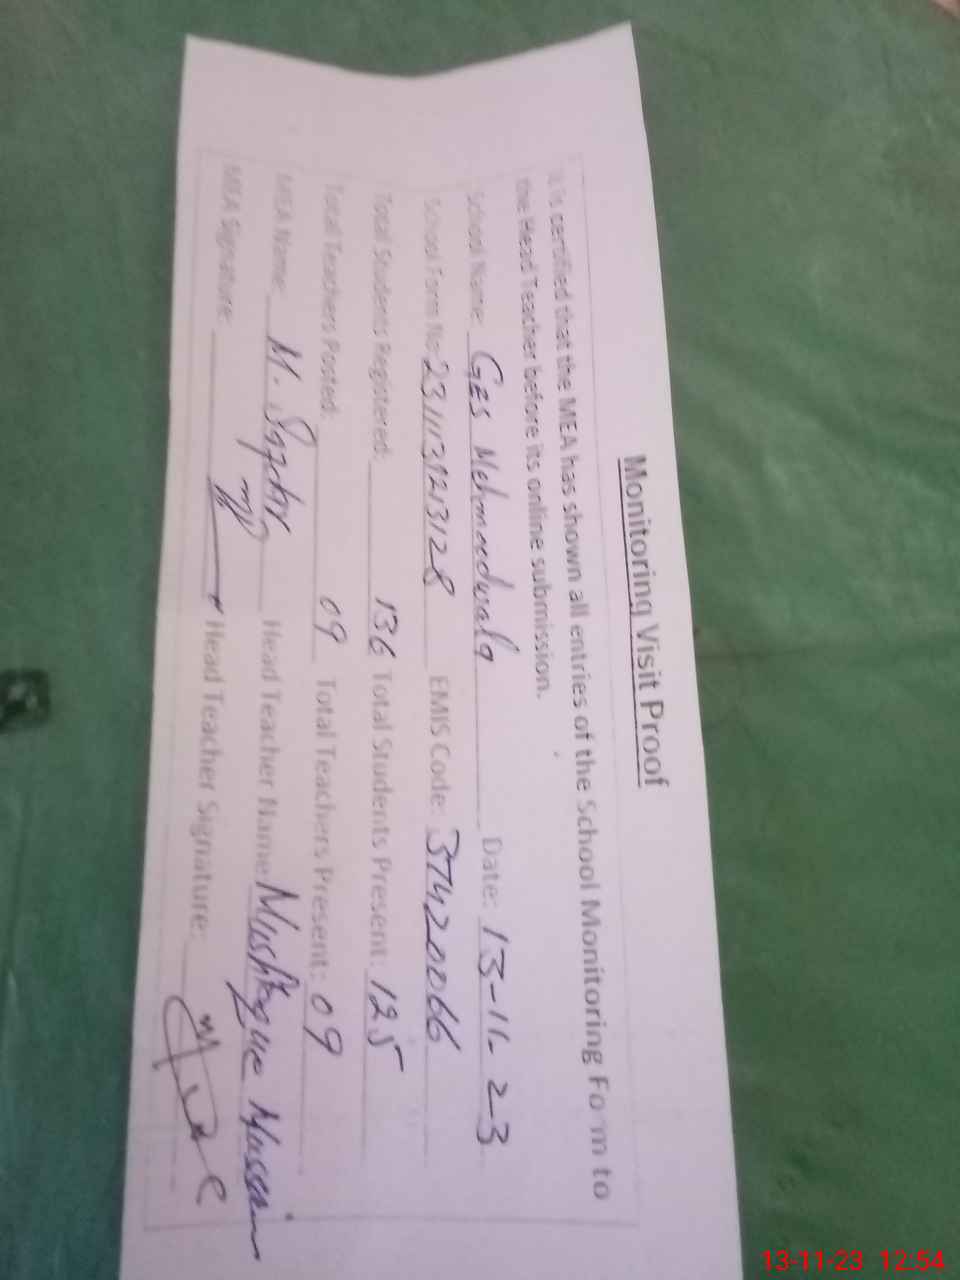 Monitoring Visit Proof
It is certified that the MEA has shown all entries of the School Monitoring Fo m to
the Head Teacher before its online submission.
School Name: GES Mehmoodwala Date: 13-11-23
School Form No: EMIS Code: 37420066
Total Students Registered: 136 Total Students Present: 125
Total Teachers Posted: 09 Total Teachers Present: 09
MEA Name: M. Head Teacher Name:
MEA Signature: Head Teacher Signature:
13-11-23 12:54